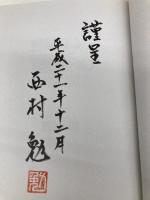 謹呈
平成二十一年十二月
西村勉